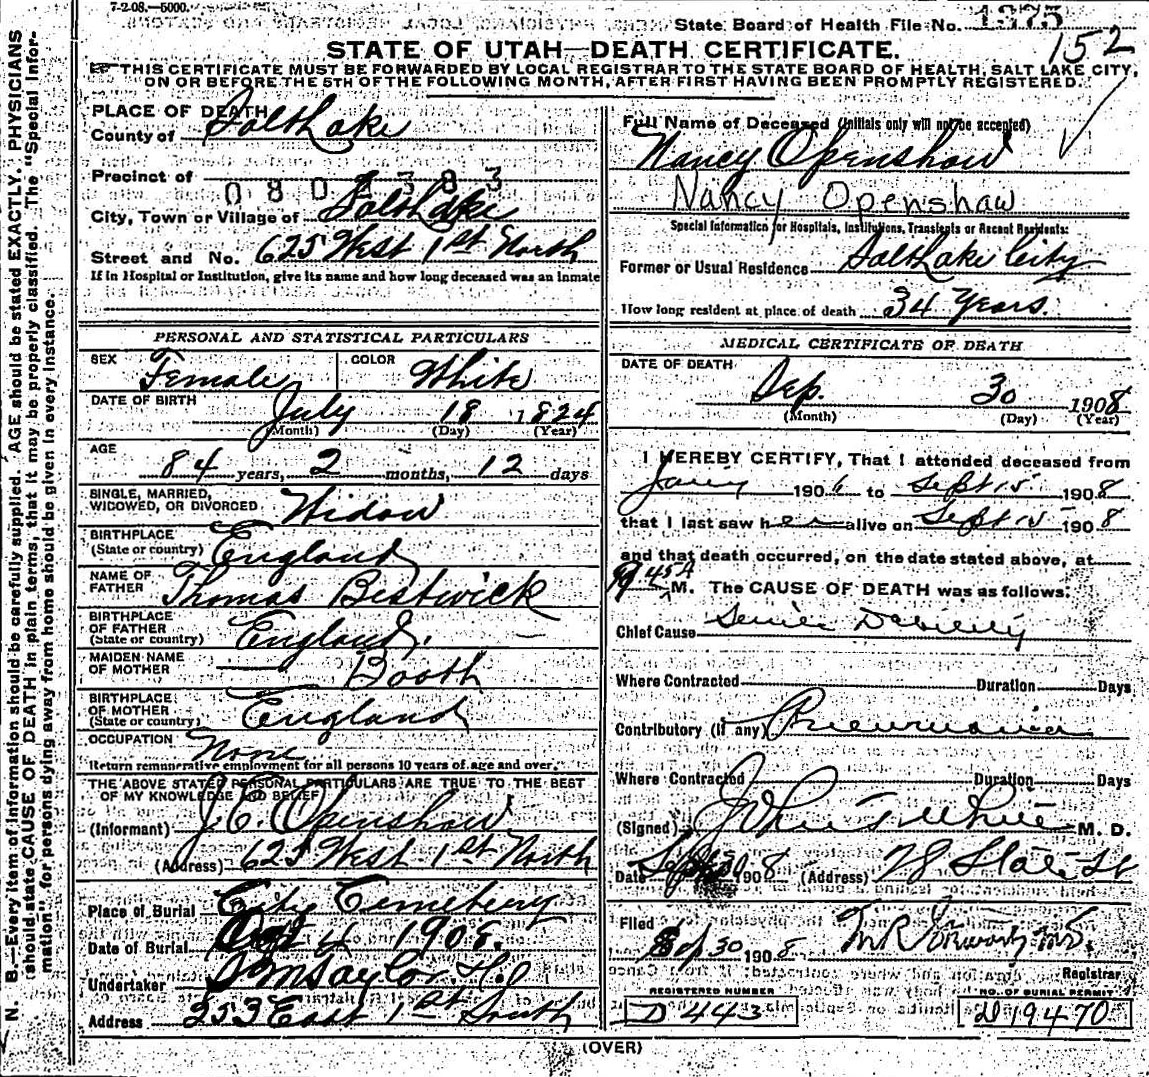 7-2-08.—5000.
State Board of Health File No. 1375
152
STATE OF UTAH—DEATH CERTIFICATE.
THIS CERTIFICATE MUST BE FORWARDED BY LOCAL REGISTRAR TO THE STATE BOARD OF HEALTH, SALT LAKE CITY,
ON OR BEFORE THE 5TH OF THE FOLLOWING MONTH, AFTER FIRST HAVING BEEN PROMPTLY REGISTERED.
N. B.—Every item of information should be carefully supplied. AGE should be stated EXACTLY. PHYSICIANS
should state CAUSE OF DEATH in plain terms, that it may be properly classified. The "Special Infor-
mation" for persons dying away from home should be given in every instance.
PLACE OF DEATH
County of Salt Lake
Precinct of
0804383
City, Town or Village of Salt Lake
Street and No. 625 West 1st North
If in Hospital or Institution, give its name and how long deceased was an inmate
PERSONAL AND STATISTICAL PARTICULARS
SEX Female COLOR White
DATE OF BIRTH July 18 1824
(Month) (Day) (Year)
AGE 84 years, 2 months, 12 days
SINGLE, MARRIED,
WIDOWED, OR DIVORCED Widow
BIRTHPLACE
(State or country) England
NAME OF
FATHER Thomas Bestwick
BIRTHPLACE
OF FATHER
(State or country) England.
MAIDEN NAME
OF MOTHER Booth
BIRTHPLACE
OF MOTHER
(State or country) England
OCCUPATION None
Return remunerative employment for all persons 10 years of age and over.
THE ABOVE STATED PERSONAL PARTICULARS ARE TRUE TO THE BEST
OF MY KNOWLEDGE AND BELIEF
(Informant) J. C. Openshaw
(Address) 625 West 1st North
Place of Burial City Cemetery
Date of Burial Oct 1908.
Undertaker
Address 253 East 1st South
Full Name of Deceased (Initials only will not be accepted)
Nancy Openshaw
Nancy Openshaw
Special Information for Hospitals, Institutions, Transients or Recent Residents:
Former or Usual Residence Salt Lake City
How long resident at place of death 34 Years.
MEDICAL CERTIFICATE OF DEATH
DATE OF DEATH
Sep. 30 1908
(Month) (Day) (Year)
I HEREBY CERTIFY, That I attended deceased from
1906 to Sept 15 1908
that I last saw her alive on Sept 15 1908
and that death occurred, on the date stated above, at
9 45 A M. The CAUSE OF DEATH was as follows:
Chief Cause Senile Debility
Where Contracted Duration Days
Contributory (if any) Pneumonia
Where Contracted Duration Days
(Signed) John T White M. D.
Date Sept 30 1908 (Address) 78 State St
Filed
Sep 30 1908
Registrar
REGISTERED NUMBER
D 443
NO. OF BURIAL PERMIT
19470
(OVER)